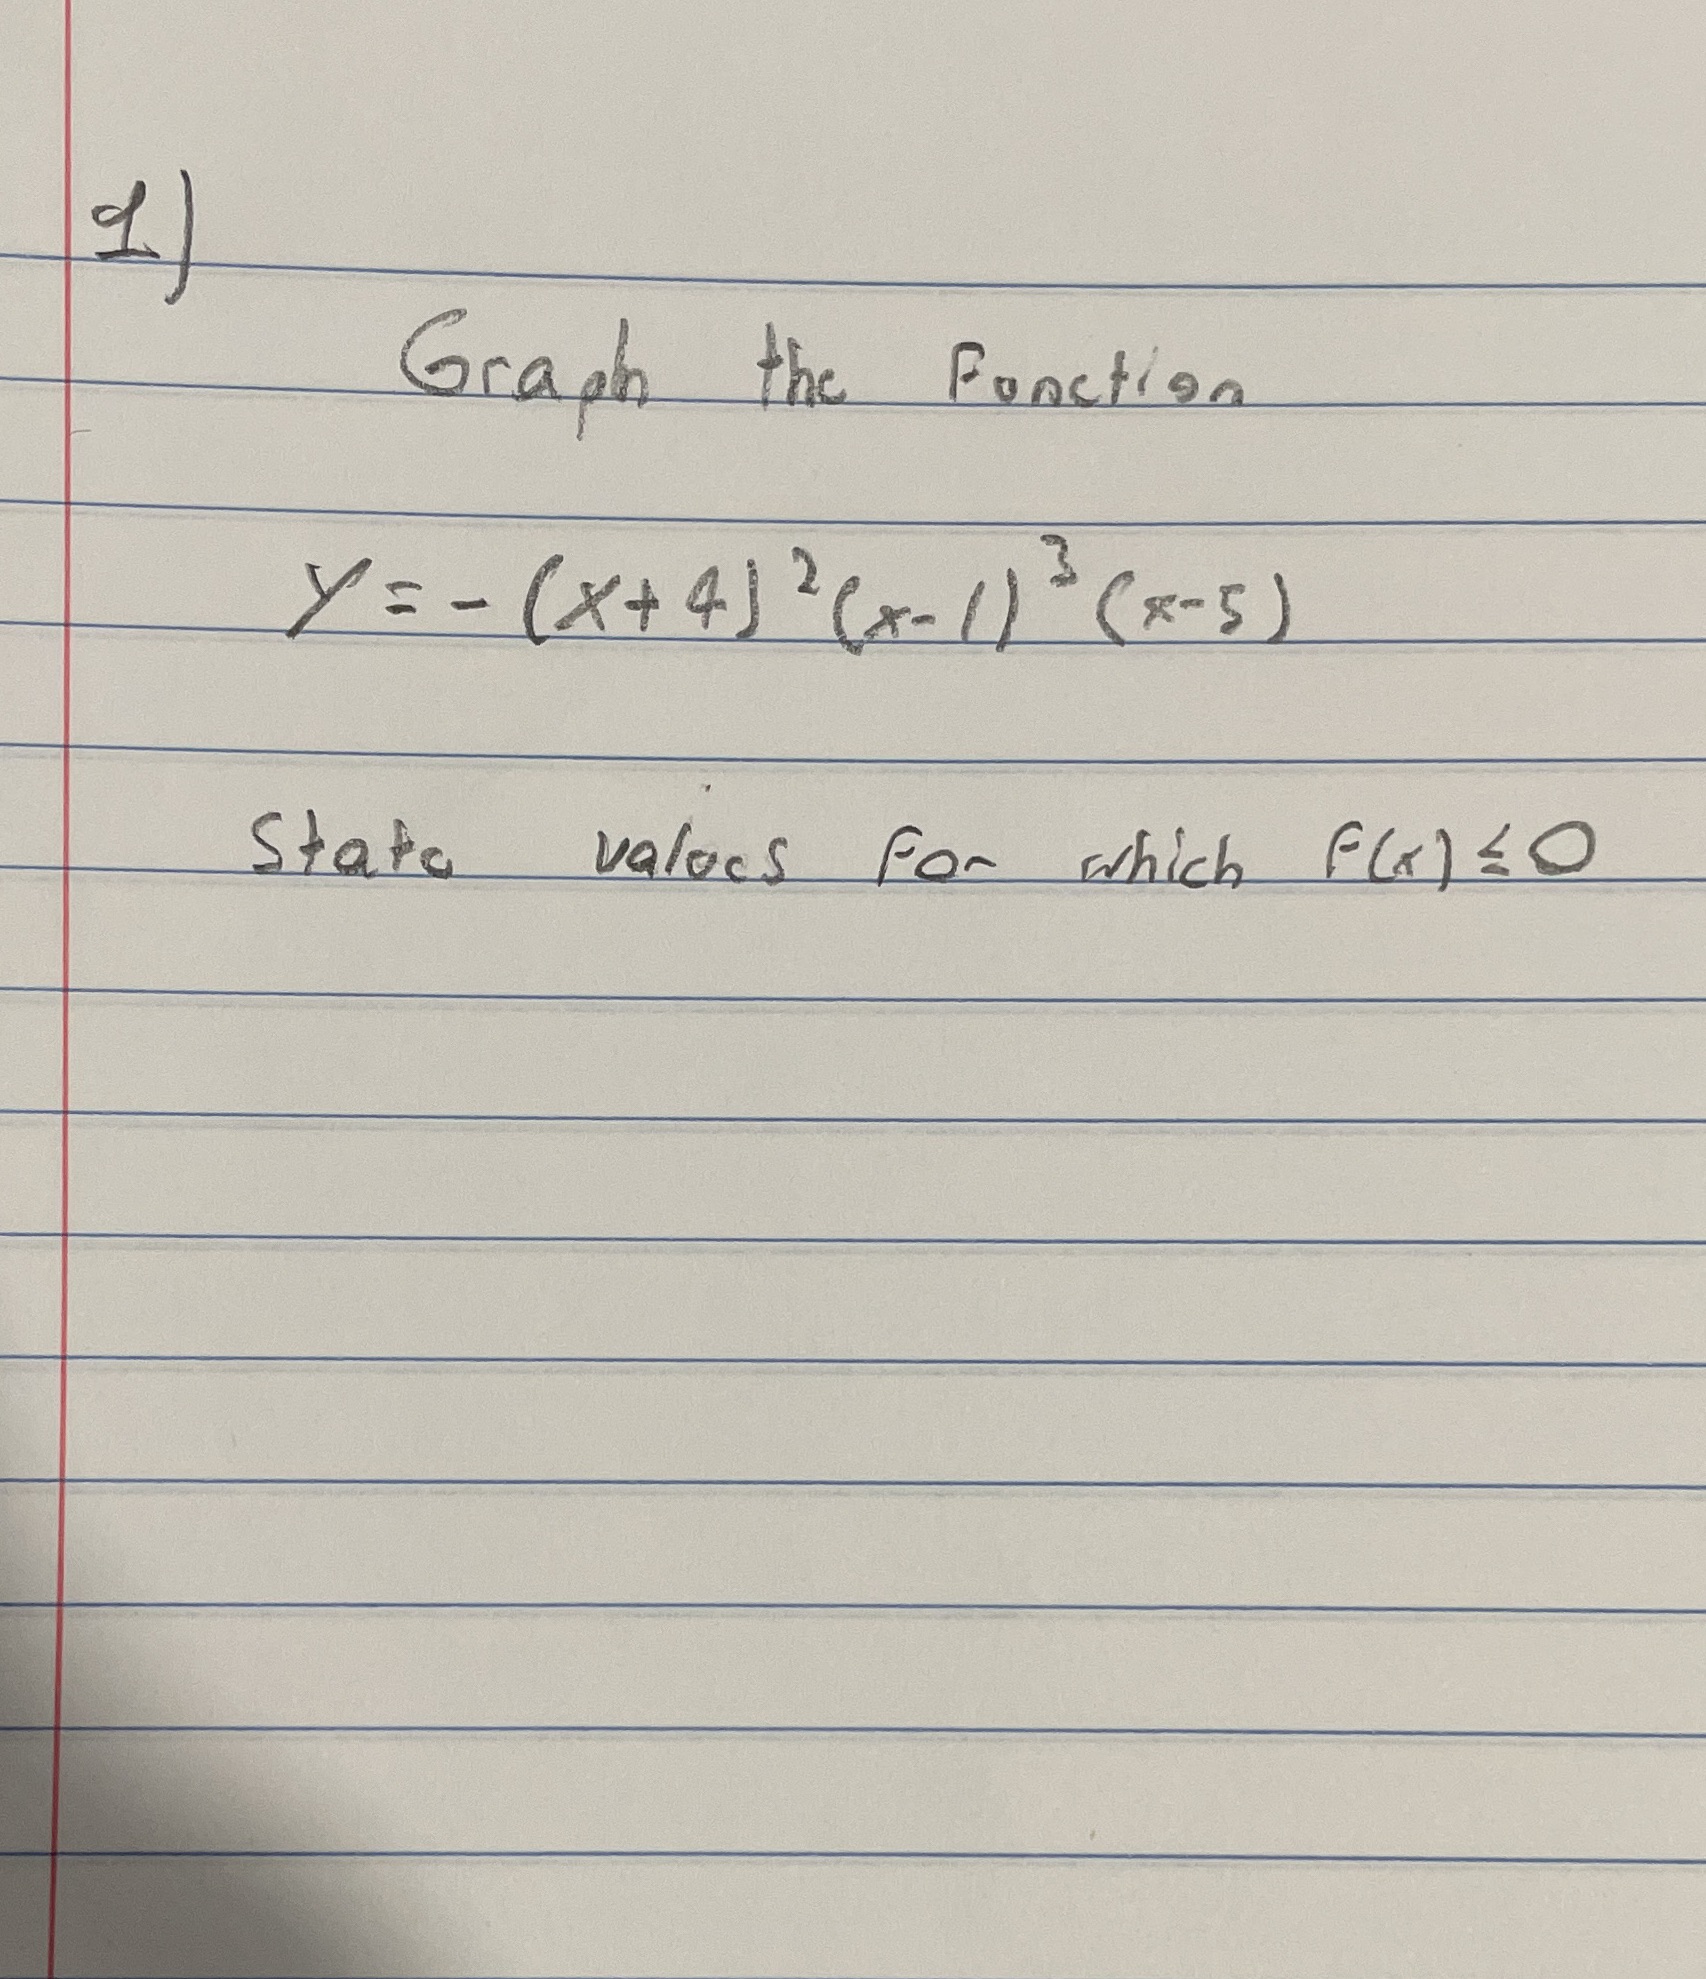 1)
Graph the Function
y = - (x+4)²(x-1)³(x-5)
State values for which F(x) ≤ 0